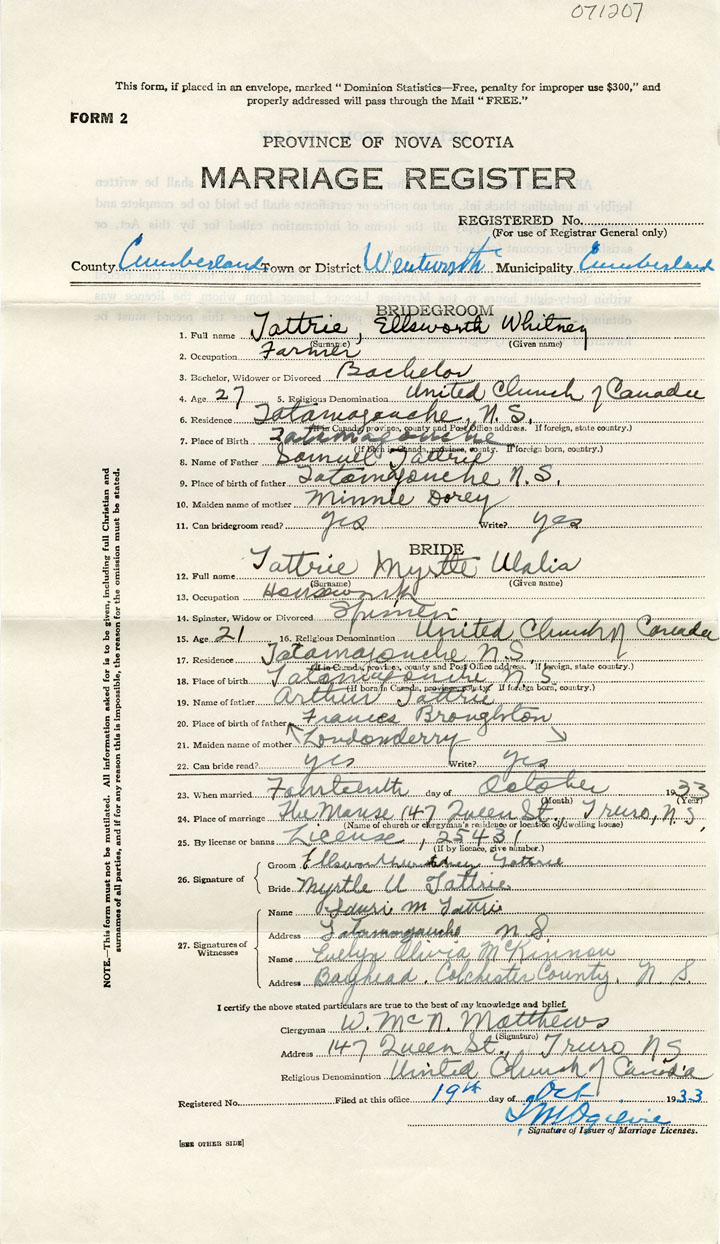 071207
This form, if placed in an envelope, marked “Dominion Statistics—Free, penalty for improper use $300,” and
properly addressed will pass through the Mail “FREE.”
FORM 2
PROVINCE OF NOVA SCOTIA
MARRIAGE REGISTER
REGISTERED No.
(For use of Registrar General only)
County Cumberland Town or District Wentworth Municipality Cumberland
BRIDEGROOM
1. Full name Tattrie, Ellsworth Whitney
(Surname) (Given name)
2. Occupation Farmer
3. Bachelor, Widower or Divorced Bachelor
4. Age 27 5. Religious Denomination United Church of Canada
6. Residence Tatamagouche, N.S.
(If in Canada, province, county and Post Office address. If foreign, state country.)
7. Place of Birth Tatamagouche
(If born in Canada, province, county. If foreign born, country.)
8. Name of Father Samuel Tattrie
9. Place of birth of father Tatamagouche N.S.
10. Maiden name of mother Minnie Dorey
11. Can bridegroom read? yes Write? yes
BRIDE
12. Full name Tattrie Myrtle Ulalia
(Surname) (Given name)
13. Occupation Housework
14. Spinster, Widow or Divorced
15. Age 21 16. Religious Denomination United Church of Canada
17. Residence Tatamagouche N.S
(If in Canada, province, county and Post Office address. If foreign, state country.)
18. Place of birth Tatamagouche N.S
(If born in Canada, province, county. If foreign born, country.)
19. Name of father Arthur Tattrie
20. Place of birth of father Frances Broughton
21. Maiden name of mother Londonderry
22. Can bride read? yes Write? yes
23. When married Fourteenth day of October 1933
(Month) (Year)
24. Place of marriage The Manse 147 Queen St., Truro, N.S,
(Name of church or clergyman's residence or location of dwelling house)
25. By license or banns License, 25431
(If by licence, give number.)
26. Signature of Groom Ellsworth Whitney Tattrie
Bride Myrtle U Tattrie
27. Signatures of Witnesses
Name M Tattrie
Address Tatamagouche N S
Name Evelyn Olivia McKinnon
Address Bayhead, Colchester County, N S.
I certify the above stated particulars are true to the best of my knowledge and belief,
Clergyman W. McN. Matthews
(Signature)
Address 147 Queen St., Truro NS
Religious Denomination United Church of Canada
Registered No. Filed at this office 19th day of Oct 1933
Ogilvie
Signature of Issuer of Marriage Licenses.
[SEE OTHER SIDE]
NOTE.—This form must not be mutilated. All information asked for is to be given, including full Christian and
surnames of all parties, and if for any reason this is impossible, the reason for the omission must be stated.